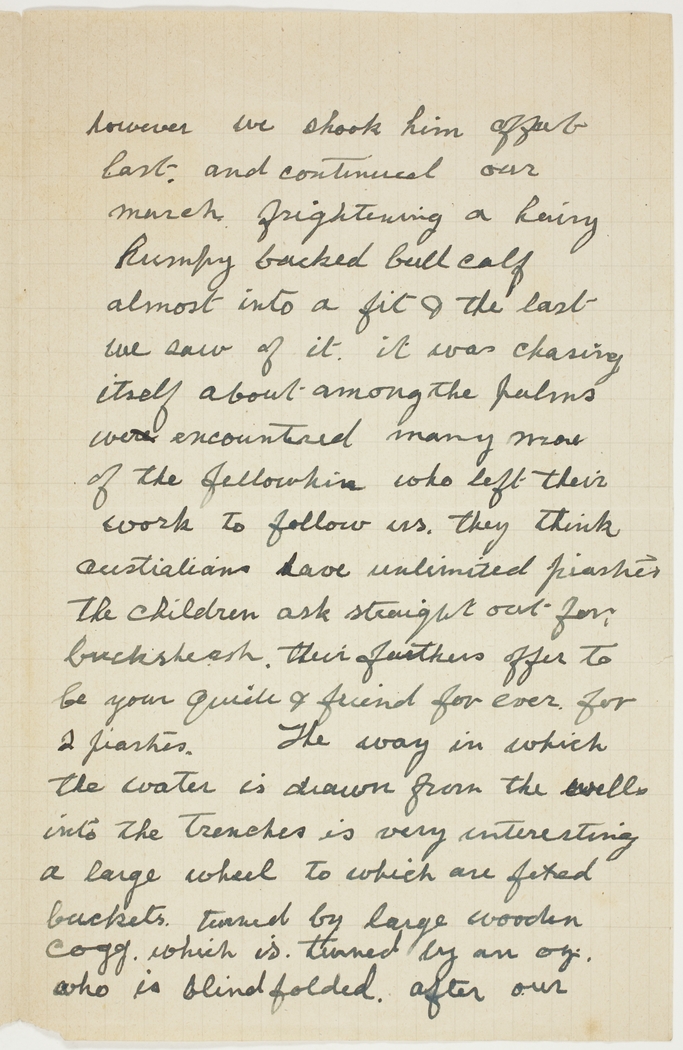 however we shook him off at
last. and continued our
march. frightening a hairy
humpy backed bull calf
almost into a fit & the last
we saw of it. it was chasing
itself about among the palms
were encountered many more
of the fellowhin who left their
work to follow us. they think
australians have unlimited piastres
the children ask straight out for.
bucksheesh. their fathers offer to
be your guide & friend for ever. for
2 piastres. The way in which
the water is drawn from the wells
into the trenches is very interesting
a large wheel to which are fixed
buckets. turned by large wooden
cogg. which is. turned by an ox.
who is blindfolded. after our